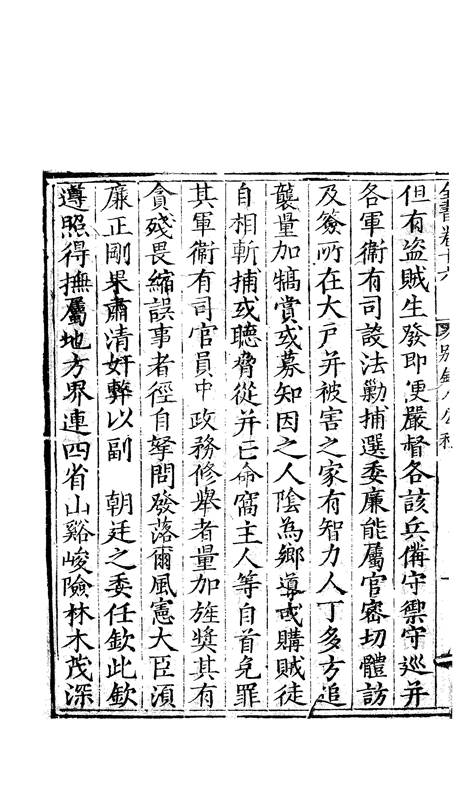 全書卷十六 別錄八 公移
但有盜賊生發即便嚴督各該兵備守禦守巡并
各軍衛有司設法勦捕選委廉能屬官密切體訪
及簽所在大戶并被害之家有智力人丁多方追
襲量加犒賞或募知因之人陰為鄉導或購賊徒
自相斬捕或聽脅從并亡命窩主人等自首免罪
其軍衛有司官員中政務修舉者量加旌獎其有
貪殘畏縮誤事者徑自拏問發落爾風憲大臣湏
廉正剛果肅清奸弊以副 朝廷之委任欽此欽
遵照得撫屬地方界連四省山谿峻險林木茂深